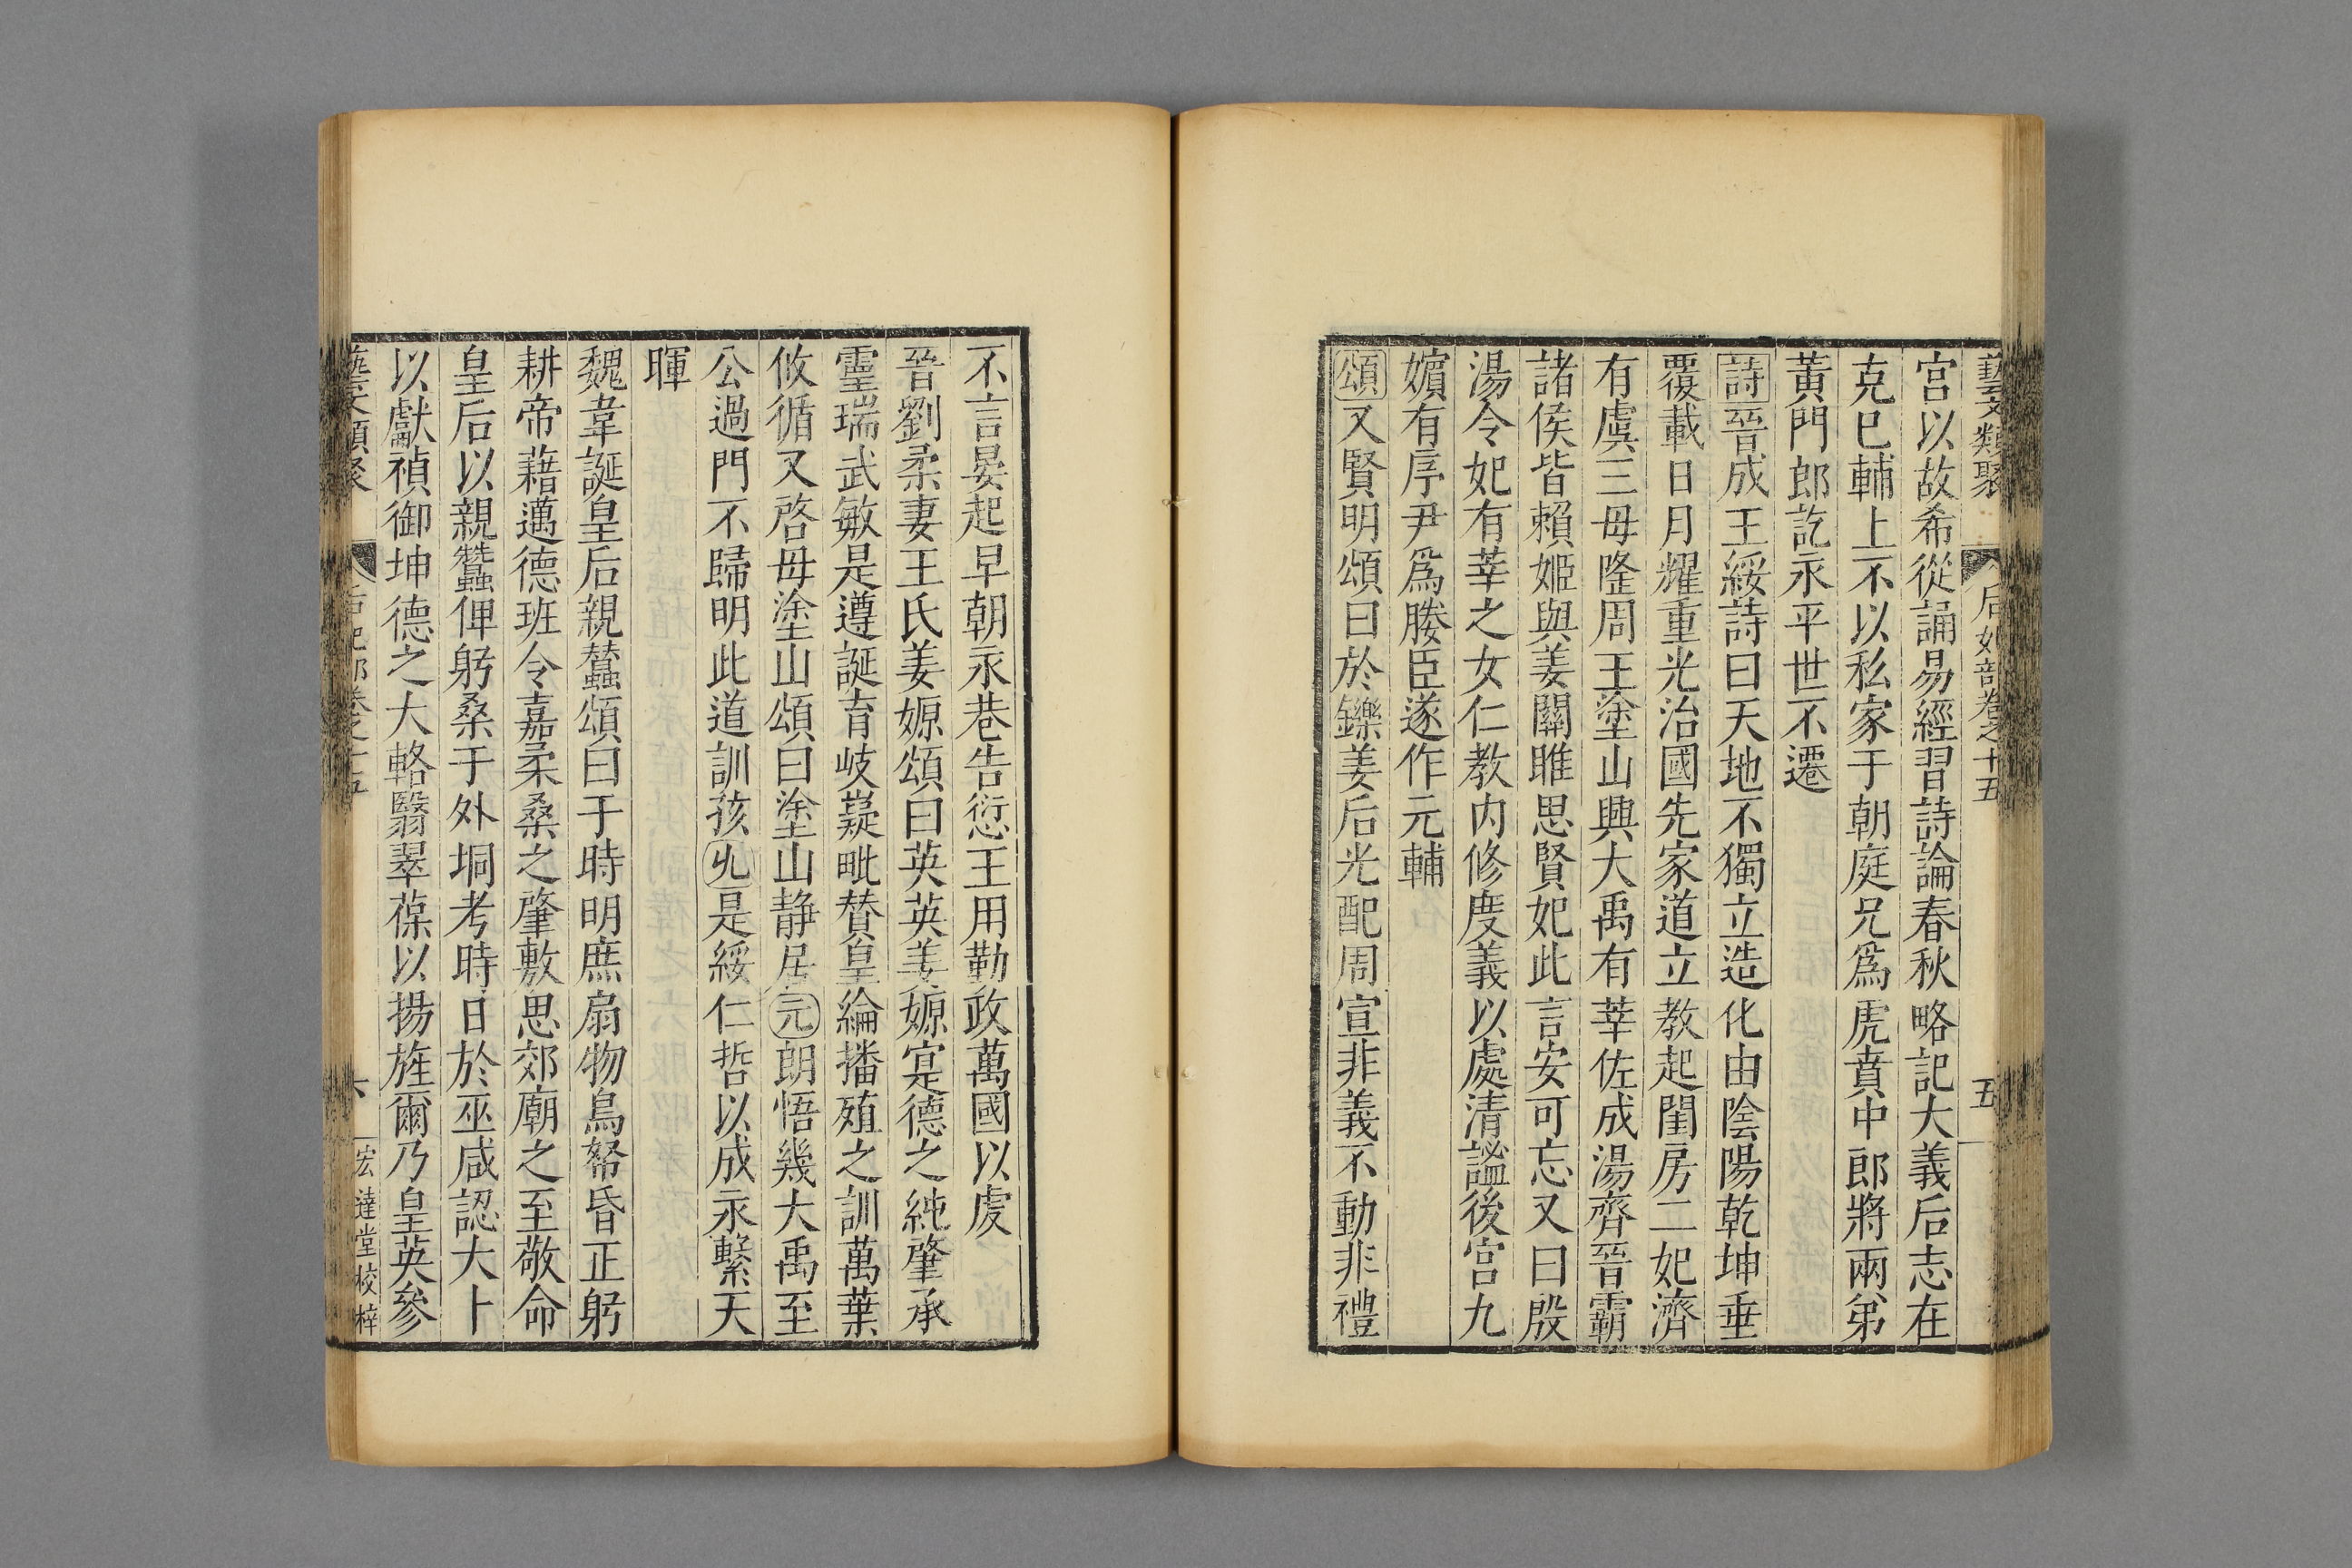 藝文類聚 后妃部卷之十五 五
宮以故希從誦易經習詩論春秋略記大義后志在
克巳輔上不以私家于朝庭兄爲虎賁中郎將兩弟
黃門郎訖永平世不遷
詩晉成王綏詩曰天地不獨立造化由陰陽乾坤垂
覆載日月耀重光治國先家道立教起閨房二妃濟
有虞三母隆周王塗山興大禹有莘佐成湯齊晉霸
諸侯皆賴姬與姜關雎思賢妃此言安可忘又曰殷
湯令妃有莘之女仁教内修度義以處清謐後宮九
嬪有序尹爲媵臣遂作元輔
頌又賢明頌曰於鑠姜后光配周宣非義不動非禮
不言晏起早朝永巷告愆王用勤政萬國以虔
晉劉柔妻王氏姜嫄頌曰英英姜嫄寔德之純肇承
靈瑞武敏是遵誕育岐嶷毗贊皇綸播殖之訓萬葉
攸循又啓母塗山頌曰塗山静居元朗悟幾大禹至
公過門不歸明此道訓孩丱是綏仁哲以成永繫天
暉
魏韋誕皇后親蠶頌曰于時明庶扇物鳥帑昏正躬
耕帝藉邁德班令嘉柔桑之肇敷思郊廟之至敬命
皇后以親蠶俾躬桑于外坰考時日於巫咸認大卜
以獻禎御坤德之大輅翳翠葆以揚旌爾乃皇英參
藝文類聚 后妃部卷之十五 六 宏達堂校梓